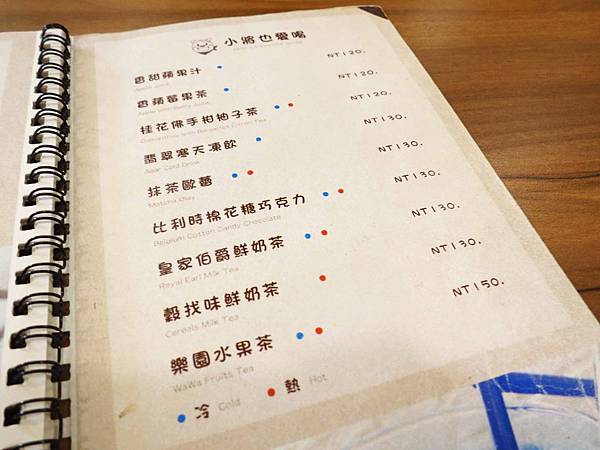 小將也愛喝
香甜蘋果汁 NT120.
Apple Juice
香蘋莓果茶 NT120.
Apple with Berry Juice
桂花佛手柑柚子茶 NT130.
Osmanthus with Bergamot Citron Tea
翡翠寒天凍飲 NT130.
Agar Cold Drink
抹茶歐蕾 NT130.
Matcha Olay
比利時棉花糖巧克力 NT130.
Belgium Cotton Candy Chocolate
皇家伯爵鮮奶茶 NT130.
Royal Earl Milk Tea
穀找味鮮奶茶 NT130.
Cereals Milk Tea
樂園水果茶 NT150.
WaWa Fruits Tea
冷 Cold 熱 Hot